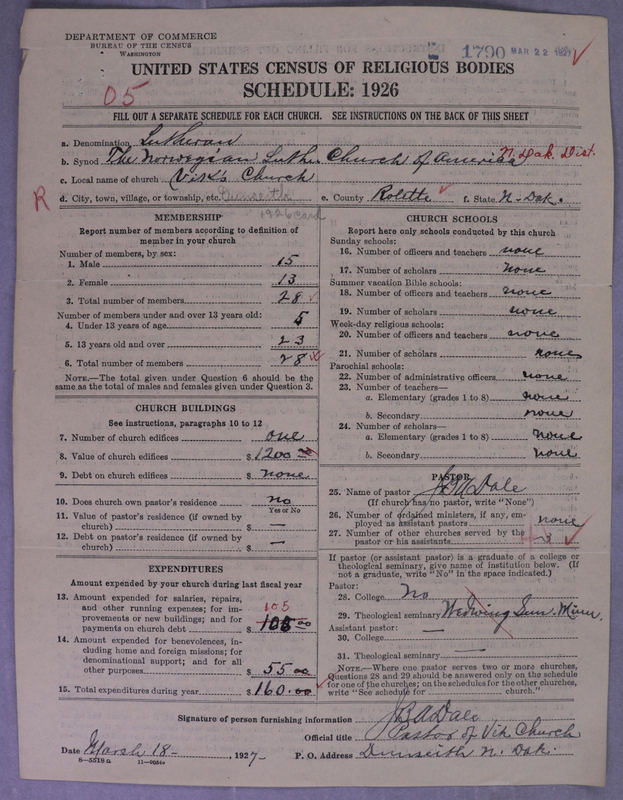 DEPARTMENT OF COMMERCE
BUREAU OF THE CENSUS
WASHINGTON
1790 MAR 22 1927
UNITED STATES CENSUS OF RELIGIOUS BODIES
SCHEDULE: 1926
05
FILL OUT A SEPARATE SCHEDULE FOR EACH CHURCH. SEE INSTRUCTIONS ON THE BACK OF THIS SHEET
a. Denomination Lutheran
b. Synod The Norwegian Luth. Church of America N. Dak. Dist.
c. Local name of church Church
R d. City, town, village, or township, etc. Dunseith e. County Rolette f. State N. Dak.
1926 card
MEMBERSHIP
Report number of members according to definition of
member in your church
Number of members, by sex:
1. Male 15
2. Female 13
3. Total number of members 28
Number of members under and over 13 years old:
4. Under 13 years of age 5
5. 13 years old and over 23
6. Total number of members 28
NOTE.—The total given under Question 6 should be the
same as the total of males and females given under Question 3.
CHURCH BUILDINGS
See instructions, paragraphs 10 to 12
7. Number of church edifices one
8. Value of church edifices $ 1200 00
9. Debt on church edifices $ none
10. Does church own pastor's residence no
Yes or No
11. Value of pastor's residence (if owned by
church) $ —
12. Debt on pastor's residence (if owned by
church) $ —
EXPENDITURES
Amount expended by your church during last fiscal year
13. Amount expended for salaries, repairs,
and other running expenses; for im-
provements or new buildings; and for
payments on church debt $ 105 00
105
14. Amount expended for benevolences, in-
cluding home and foreign missions; for
denominational support; and for all
other purposes $ 55 00
15. Total expenditures during year $ 160.00
CHURCH SCHOOLS
Report here only schools conducted by this church
Sunday schools:
16. Number of officers and teachers none
17. Number of scholars none
Summer vacation Bible schools:
18. Number of officers and teachers none
19. Number of scholars none
Week-day religious schools:
20. Number of officers and teachers none
21. Number of scholars none
Parochial schools:
22. Number of administrative officers none
23. Number of teachers—
a. Elementary (grades 1 to 8) none
b. Secondary none
24. Number of scholars—
a. Elementary (grades 1 to 8) none
b. Secondary none
PASTOR
25. Name of pastor Dale
(If church has no pastor, write "None")
26. Number of ordained ministers, if any, em-
ployed as assistant pastors none
27. Number of other churches served by the
pastor or his assistants 3
If pastor (or assistant pastor) is a graduate of a college or
theological seminary, give name of institution below. (If
not a graduate, write "No" in the space indicated.)
Pastor:
28. College No
29. Theological seminary Sem. Minn.
Assistant pastor:
30. College —
31. Theological seminary —
NOTE.—Where one pastor serves two or more churches,
Questions 28 and 29 should be answered only on the schedule
for one of the churches; on the schedules for the other churches,
write "See schedule for church."
Signature of person furnishing information Dale
Official title Pastor of Church
Date March 18 -, 1927- P. O. Address Dunseith N. Dak.
8—5518a 11—9054